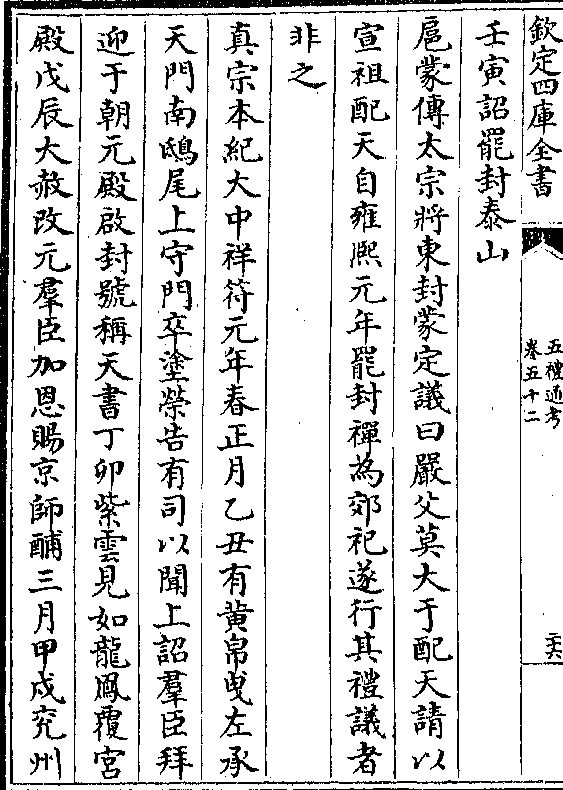 欽定四庫全書
五禮通考
卷五十二
二六
壬寅詔罷封泰山
扈蒙傳太宗將東封蒙定議曰嚴父莫大于配天請以
宣祖配天自雍熙元年罷封禪為郊祀遂行其禮議者
非之
真宗本紀大中祥符元年春正月乙丑有黄帛曵左承
天門南鴟尾上守門卒塗榮告有司以聞上詔羣臣拜
迎于朝元殿啟封號稱天書丁卯紫雲見如龍鳳覆宮
殿戊辰大赦改元羣臣加恩賜京師酺三月甲戍兖州